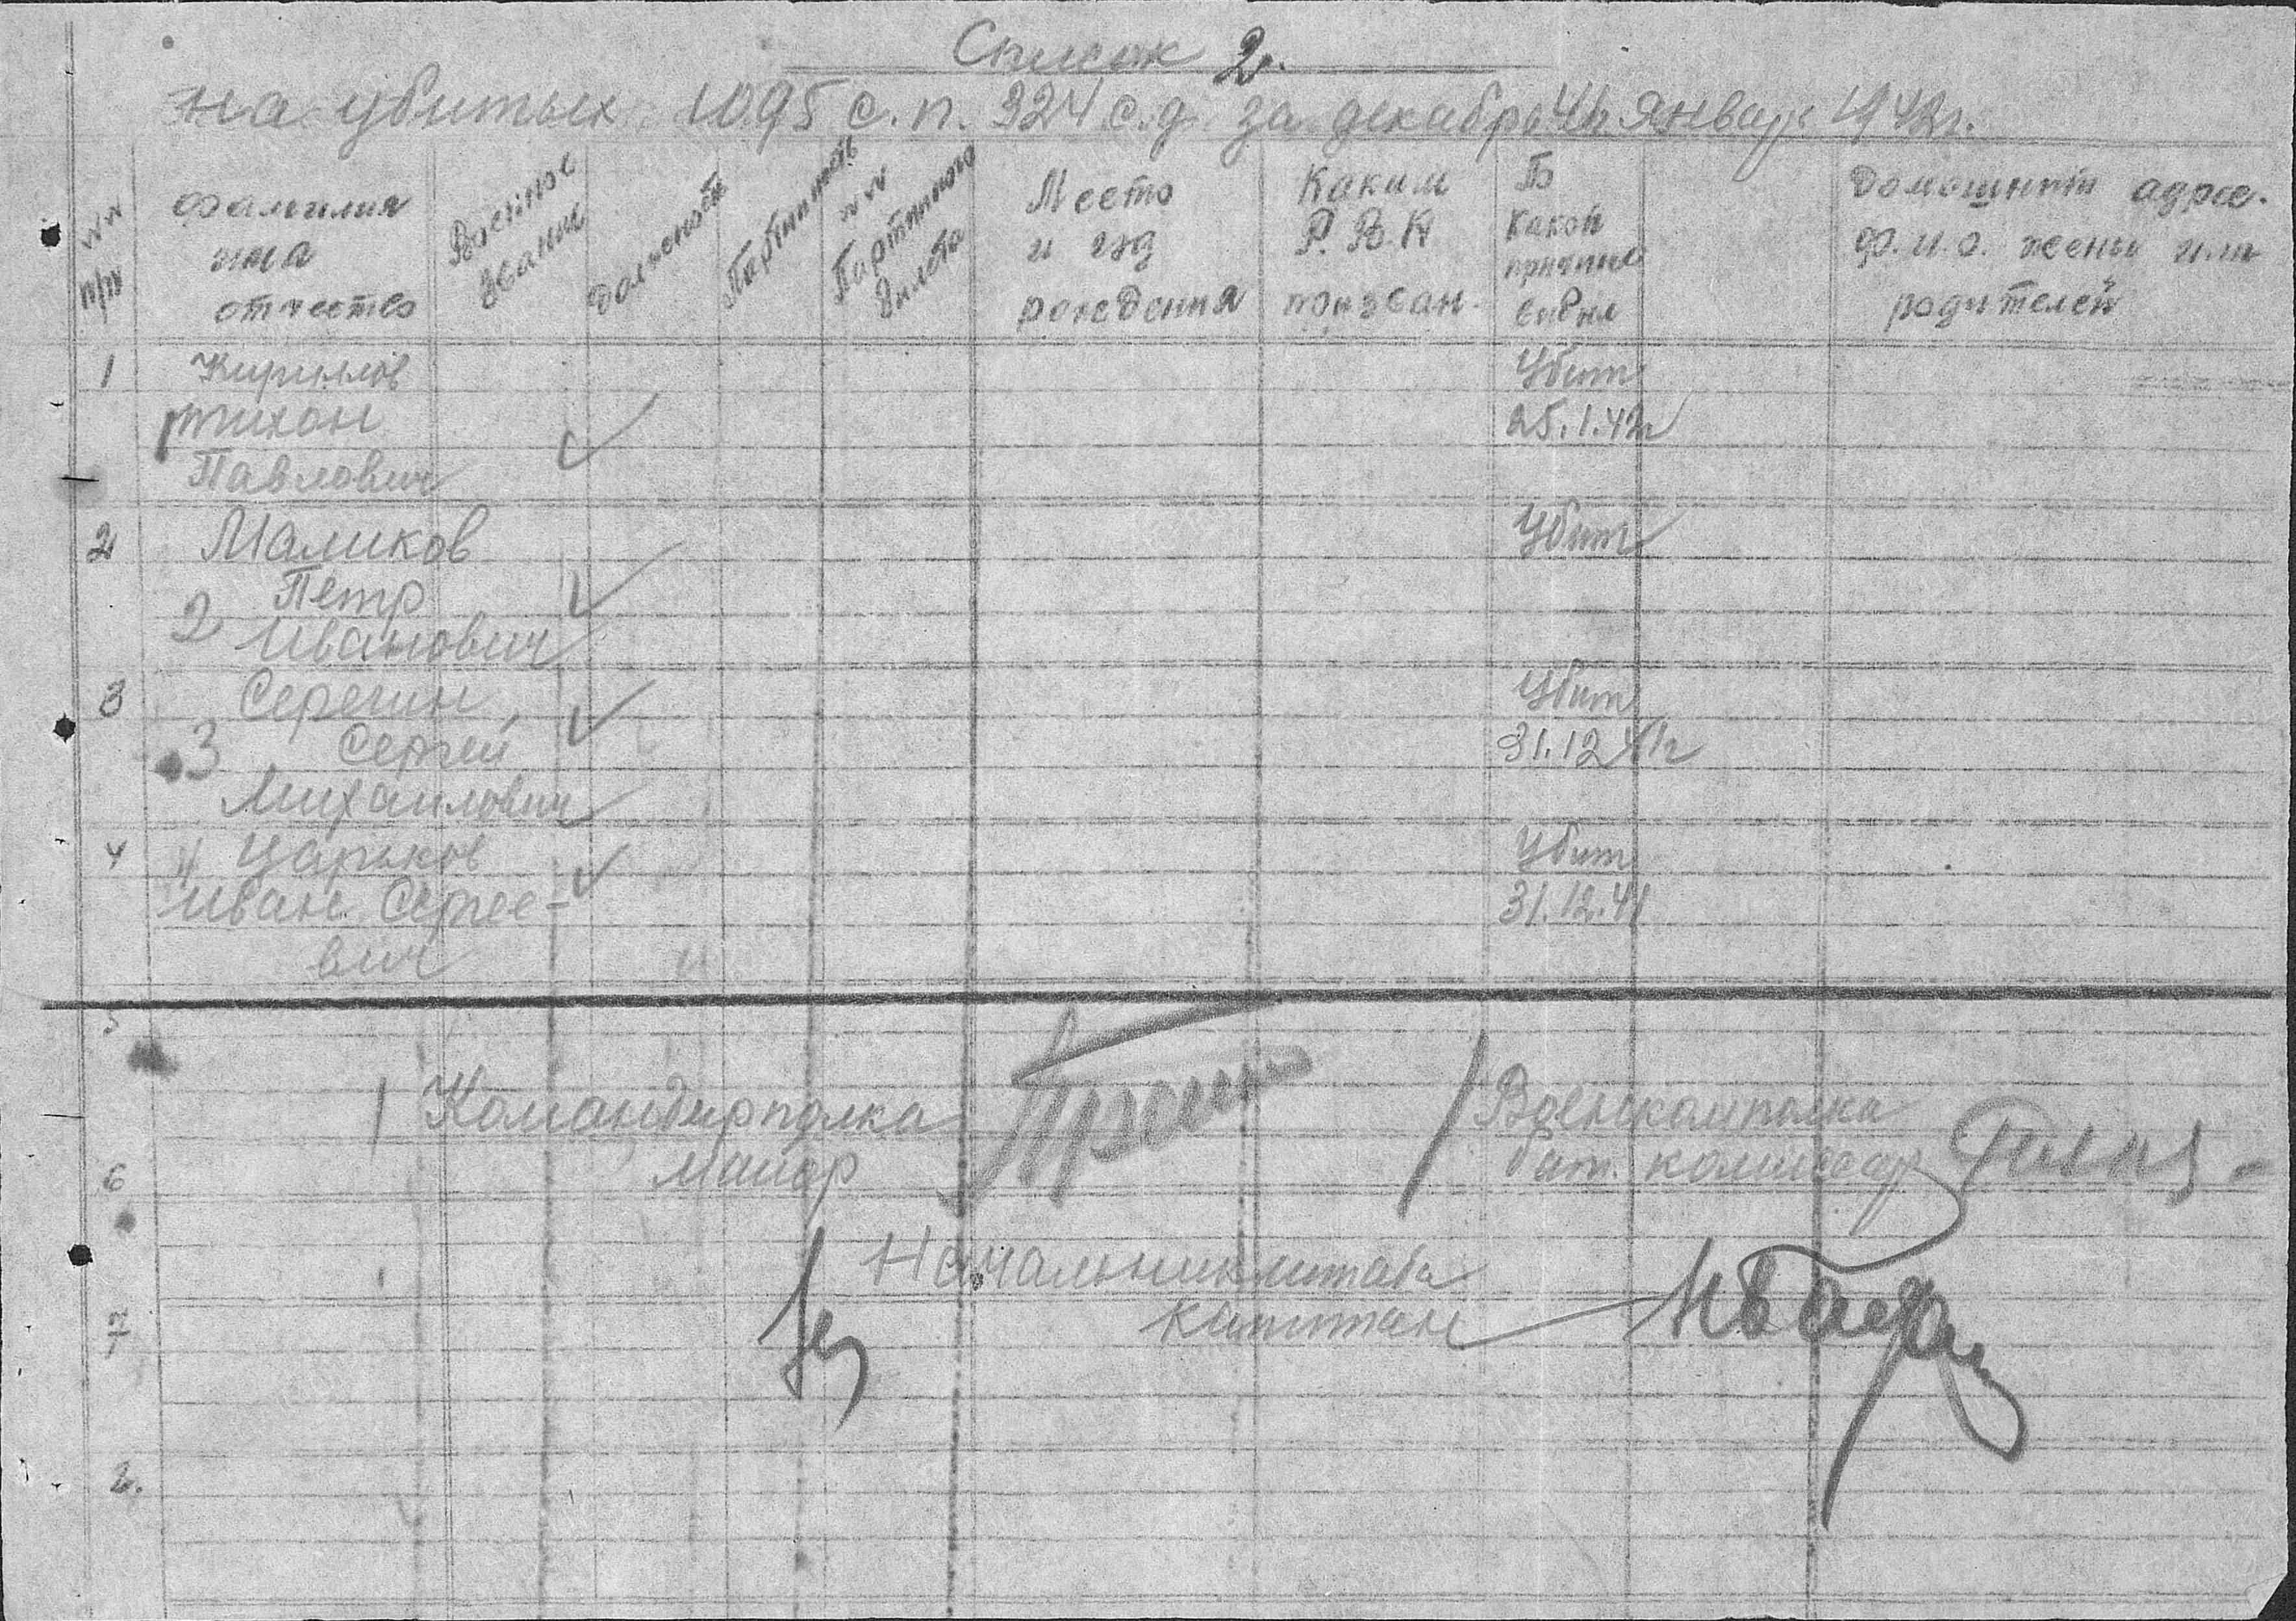 Список 2.
на убитых 1095 с.п. 324 с.д. за декабрь 41 Январь 1942г.
№№ п/п
Фамилия
имя
отчество
Военное
звание
Должность
Партийность
№№
Партийного
билета
Место
и год
рождения
Каким
Р.В.К
призван.
В
какой
причине
выбыл
Домашний адрес.
Ф.И.О. жены или
родителей
1 Кириллов
Тихон
Павлович
Убит
25.1.42г
2 Маликов
Петр
2 Иванович
Убит
3 Серегин
3 Сергей
Михайлович
Убит
31.12.41г
4 4 Царьков
Иван Сергее-
вич
Убит
31.12.41
5
Командир полка
Майор
Военком полка
бат. комиссар
6
Начальник штаба
капитан
7